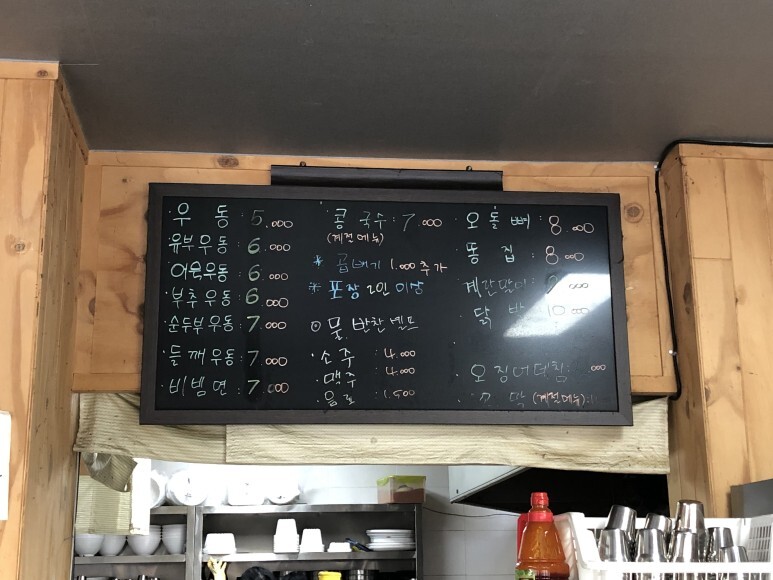 · 우 동 : 5.000
유부우동 : 6.000
어묵우동 : 6.000
부추우동 : 6.000
· 순두부우동 : 7.000
· 들깨우동 : 7.000
· 비빔면 : 7.000
· 콩 국수 : 7.000
(계절메뉴)
* 곱빼기 1.000추가
* 포장 2인 이상
⊙ 물, 반찬 셀프
· 소주 : 4.000
· 맥주 : 4.000
· 음료 : 1.500
· 오돌뼈 : 8.000
· 똥 집 : 8.000
계란말이
· 닭 발
· 오징어데침 :
(계절메뉴) :